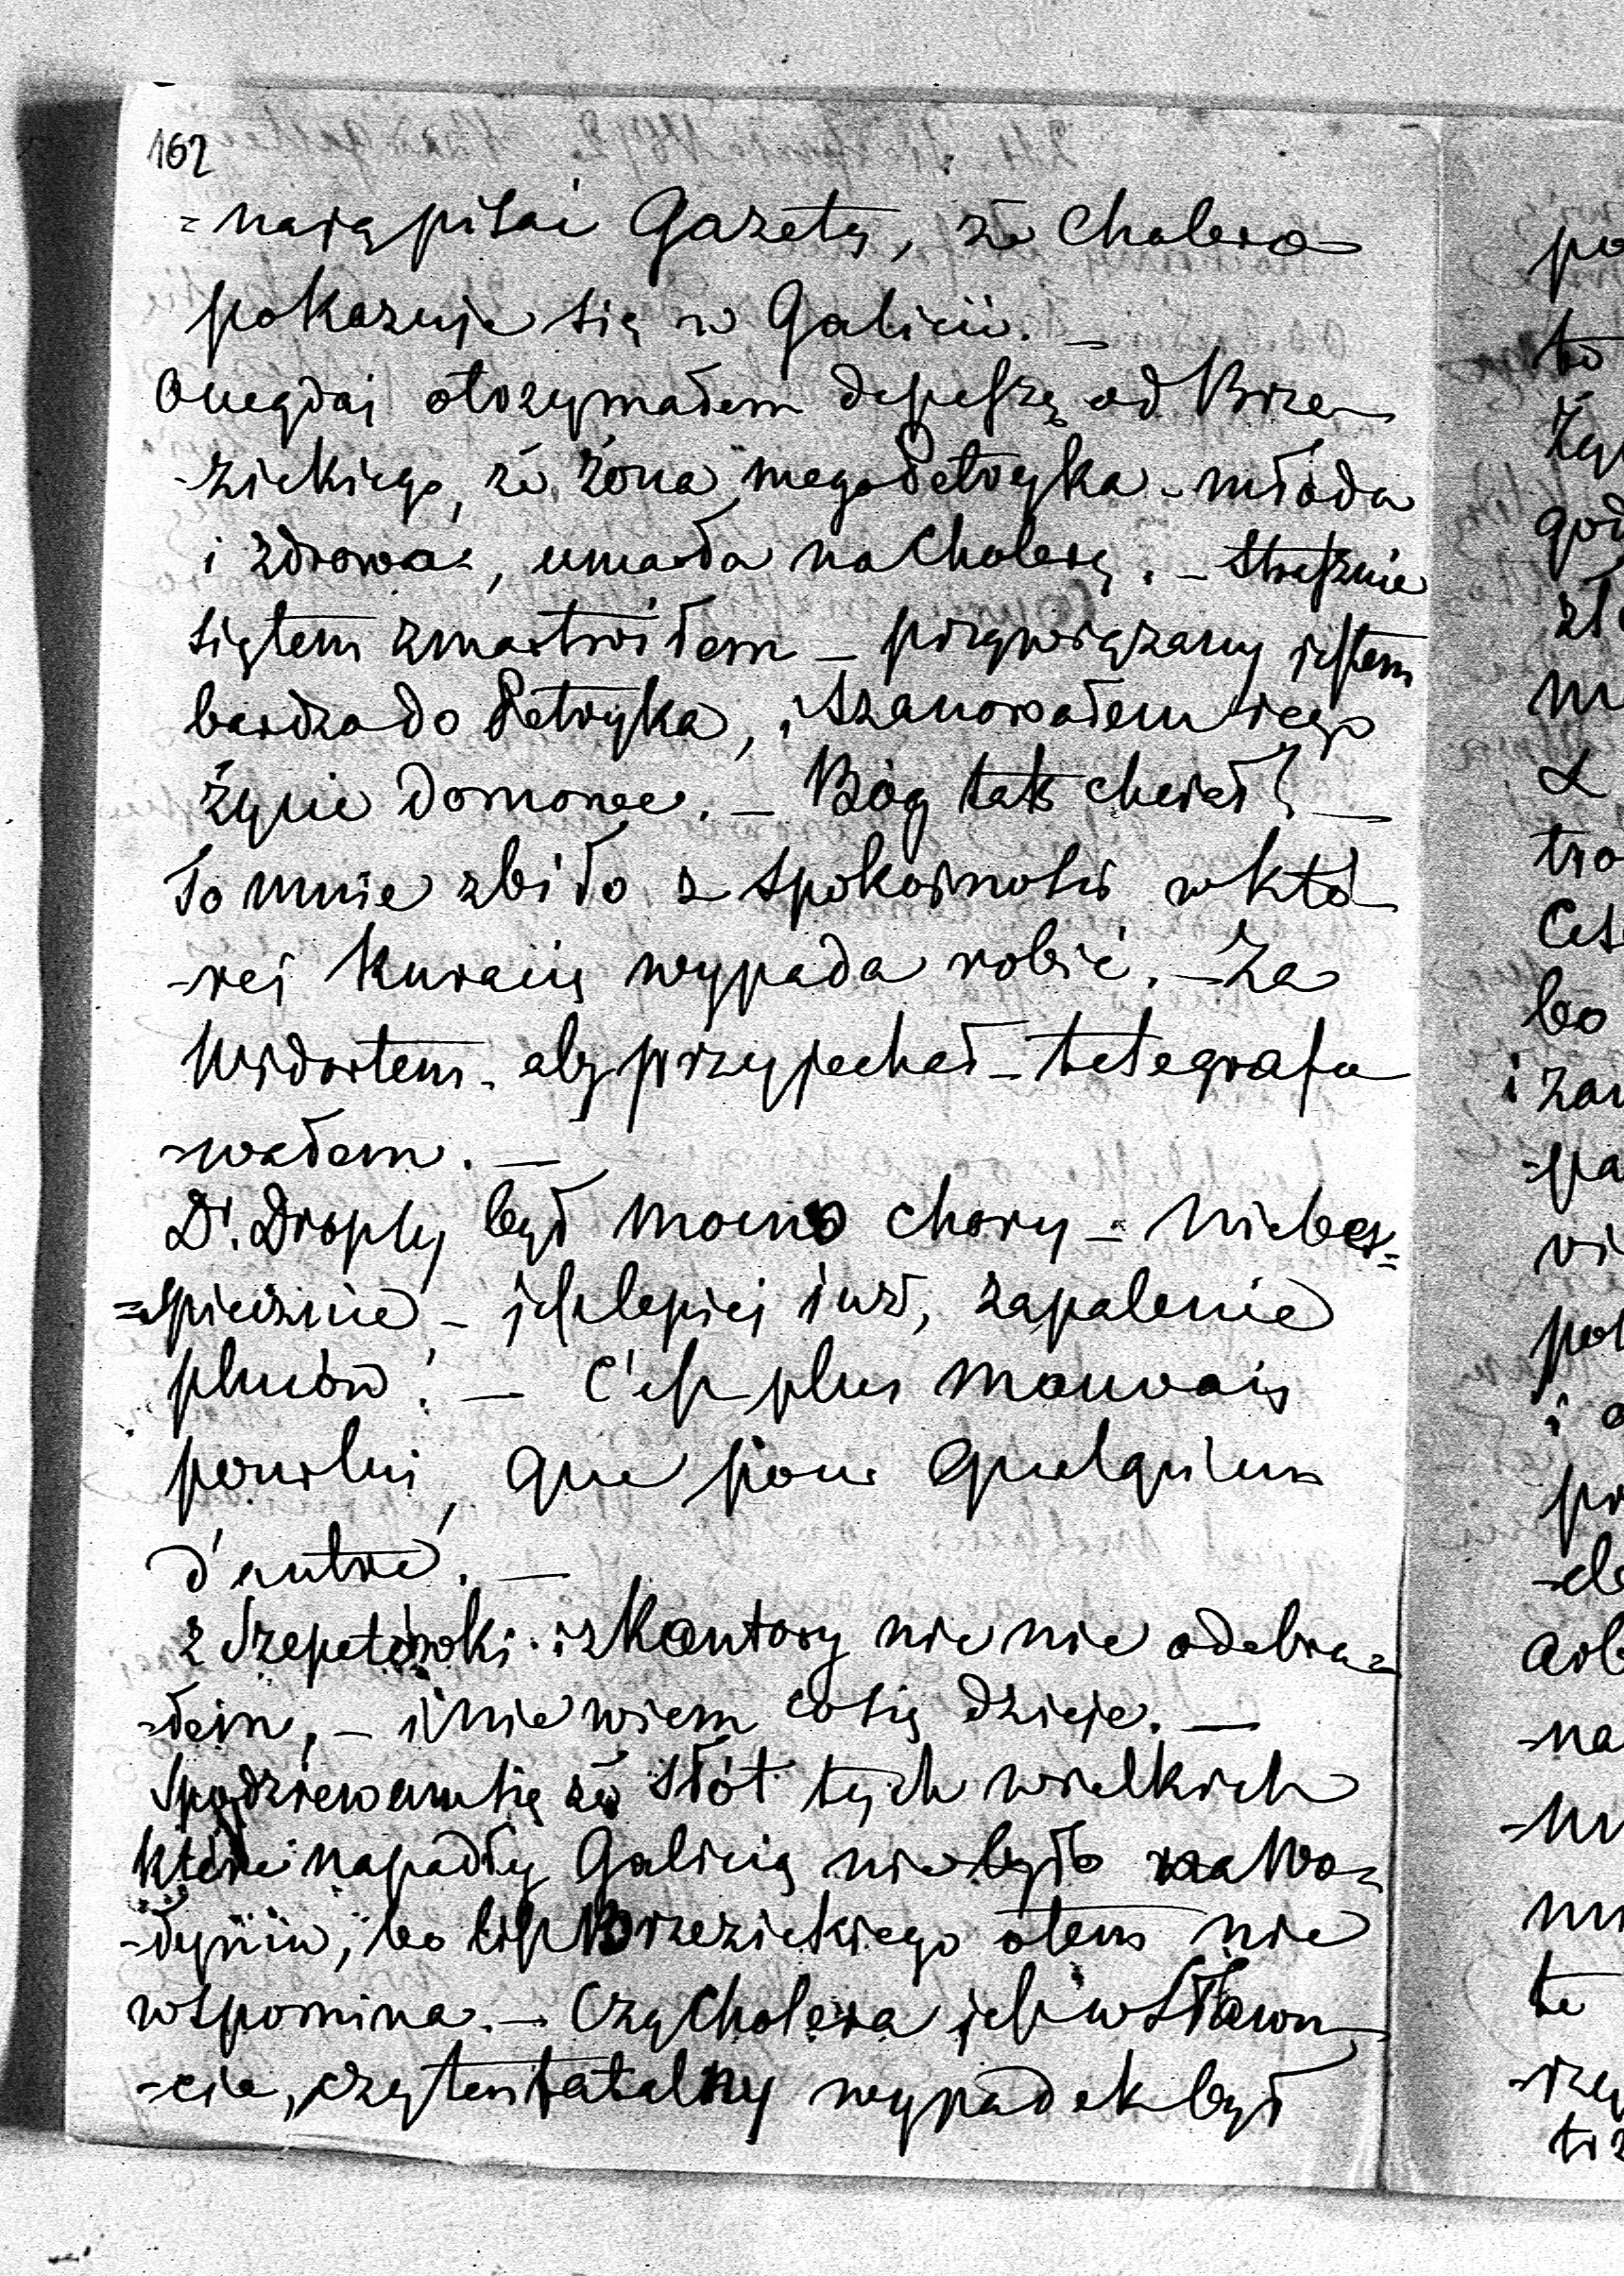 162
=nają pisać Gazety, że Cholera
pokazuje się w Galicii. —
Onegdaj otrzymałem depeszę od Brze-
-zickiego, że, żona mego Petryka - młoda
i zdrowa -, umarła na Cholerę. - Strasznie
się tem zmartwiłem — przywiązany jestem
bardzo do Petryka, i szanowałem jego
życie domowe. — Bóg tak chciał! —
To mnie zbiło z spokojności w któ-
-rej Kuracię wypada robić. — Za
Widortem - aby przyjechał - telegrafo
-wałem. —
Dr. Dropsy był mocno chory - niebes=
=spiecznie - jest lepiej już, zapalenie
płuców! — C'est plus mauvais
pour lui, que pour quelqu'un
d'autre. —
z Szepetówki i z Kantory nic nie odebra=
-łem, - i nie wiem co się dzieje. —
Spodziewam się że słót tych wielkich
które napadły Galicią nie było na Wo=
-łyniu, bo list Brzezickiego o tem nie
wspomina. — Czy Cholera jest w Sławu-
-cie, czy ten fatalny wypadek był